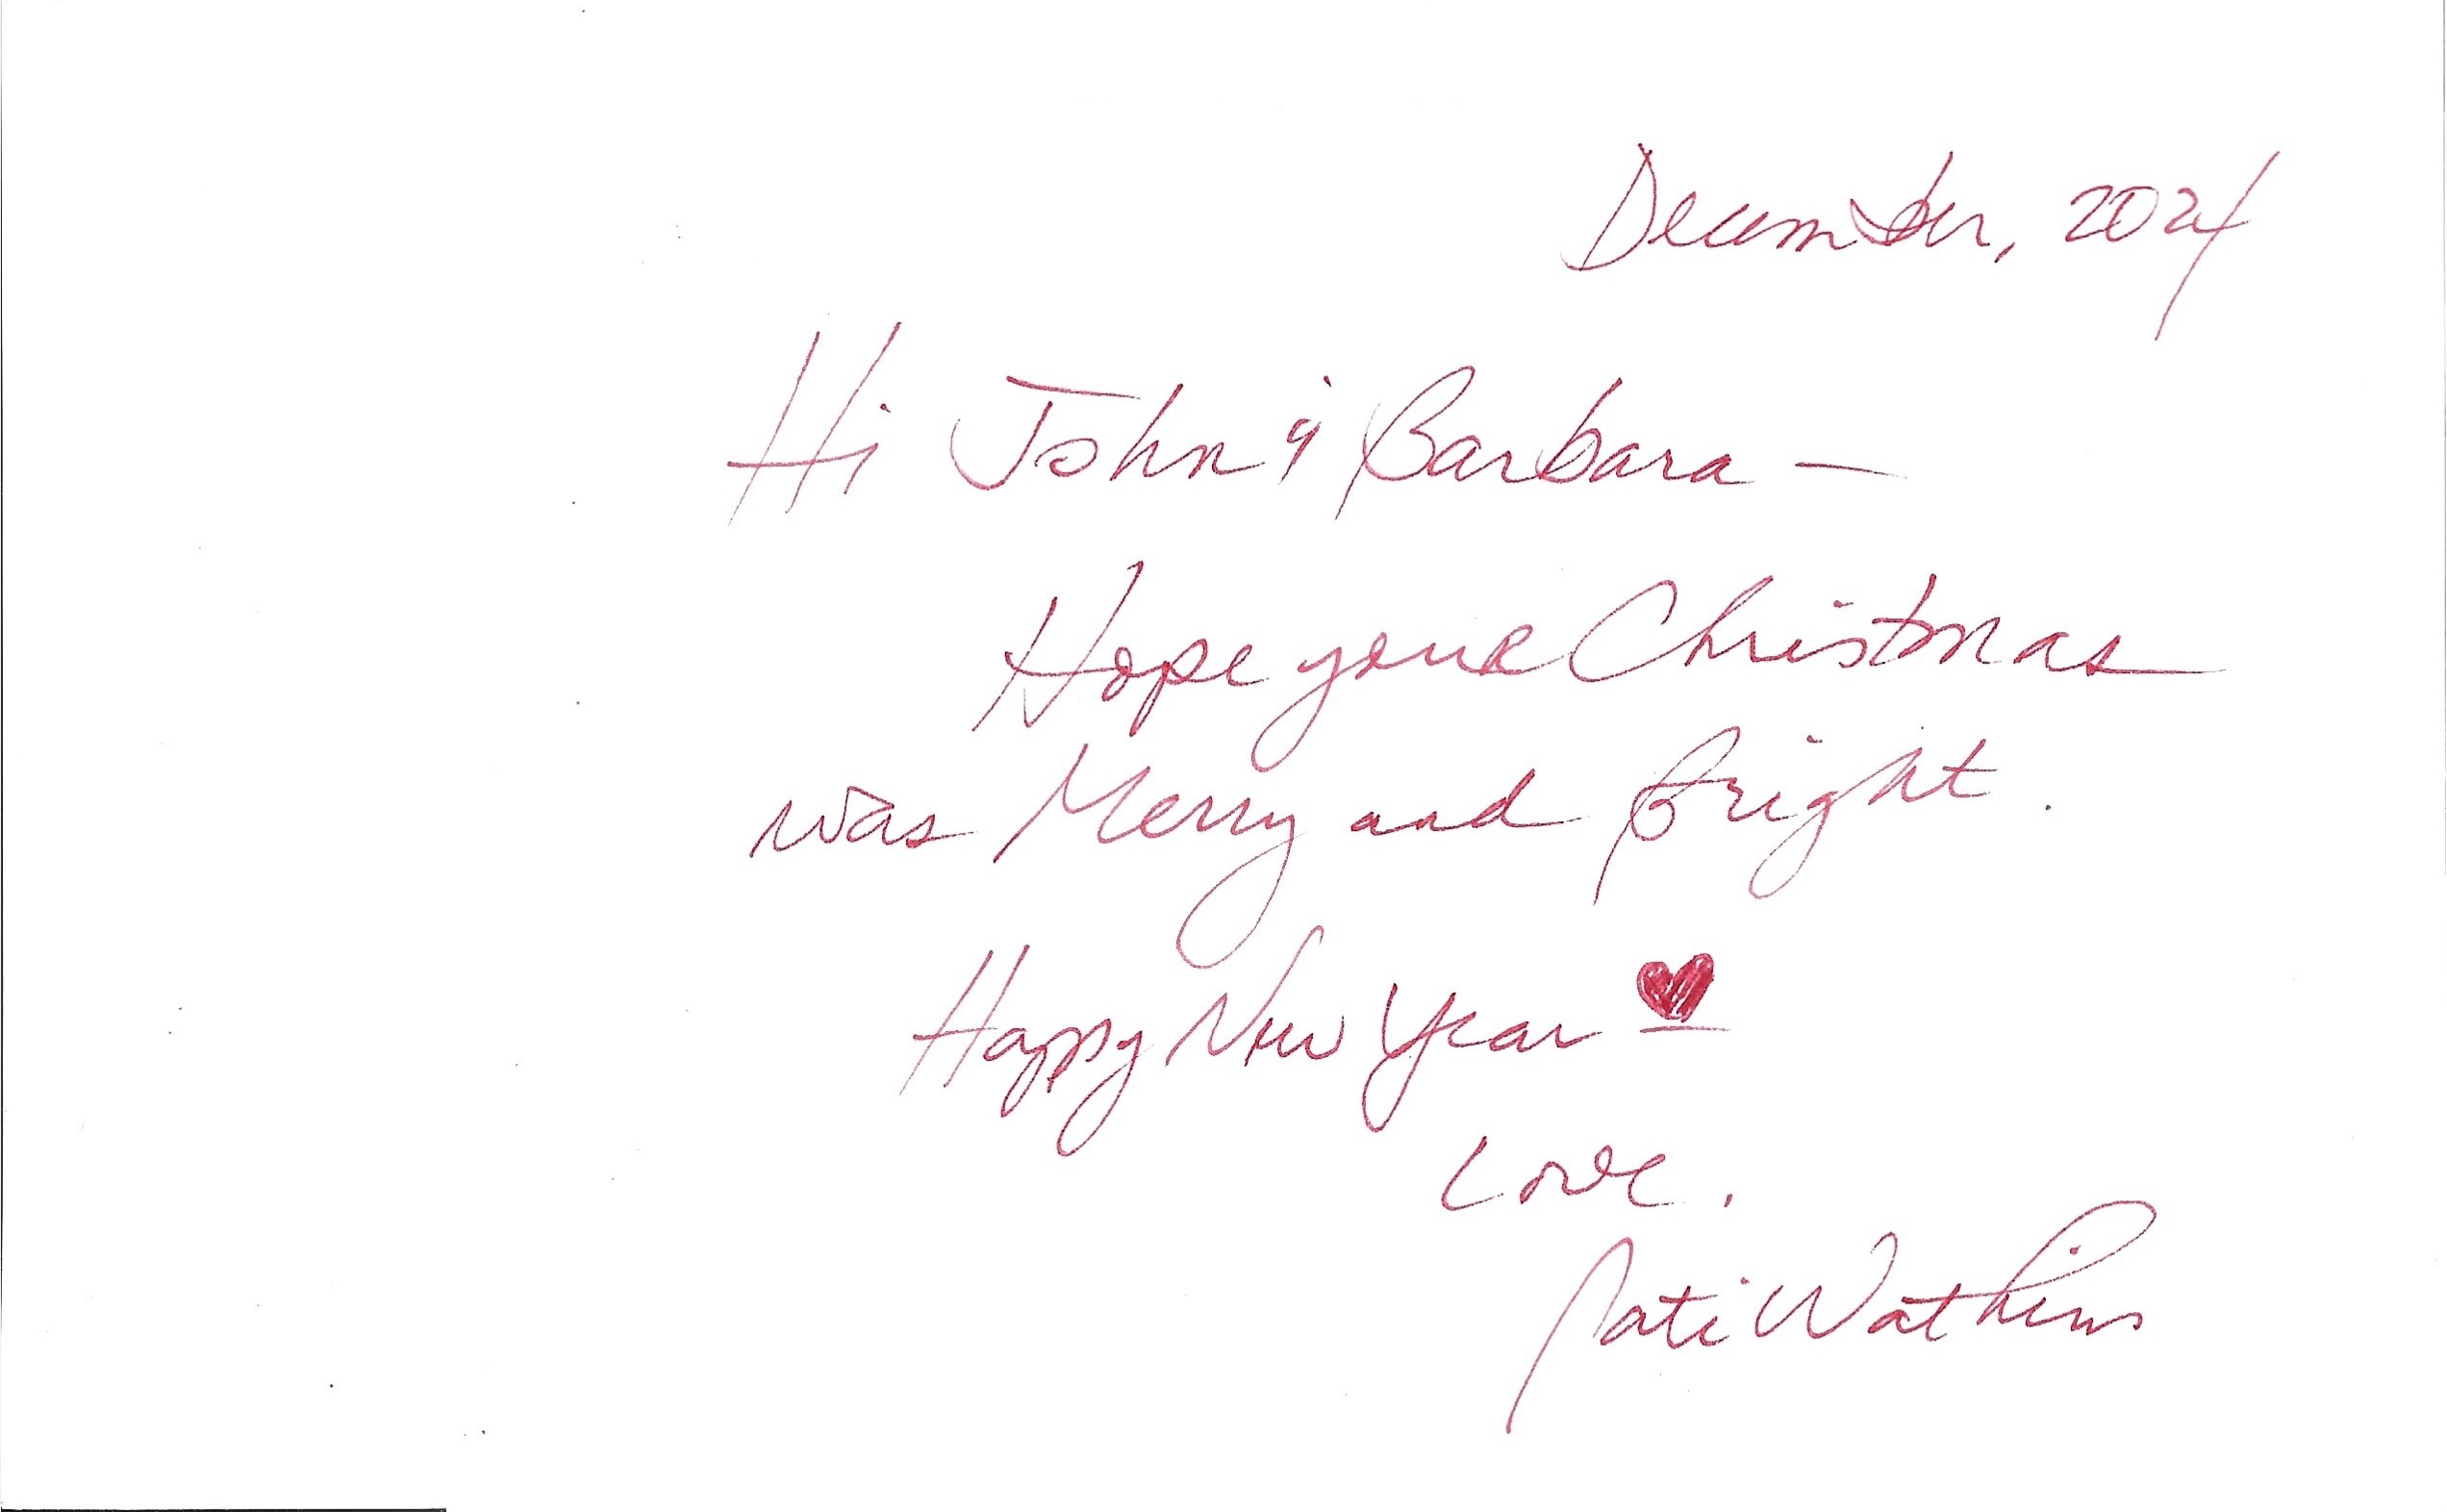 December, 2024
Hi John & Barbara —
Hope your Christmas
was Merry and Bright.
Happy New Year ♥
Love,
Pati Watkins